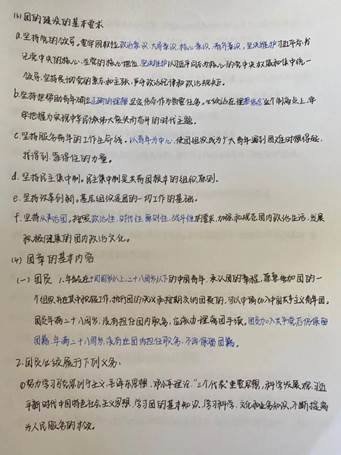 (3) 团的建设的基本要求
a. 坚持党的领导。要牢固树立政治意识、大局意识、核心意识、看齐意识,坚决维护习近平总书
记党中央的核心、全党的核心地位,坚决维护以习近平同志为核心的党中央权威和集中统一
领导,坚持党的基本
b. 坚持把帮助青年确立正确的理想、坚定的信念作为首要任务。
牢牢把握为实现中华民族伟大复兴的中国梦而奋斗的时代主题。
c. 坚持服务青年的工作生命线。以青年为中心,使团组织成为广大青年遇到困难时想得起、
找得到、靠得住的力量。
d. 坚持民主集中制。民主集中制是共青团根本的组织原则。
e. 坚持改革创新。基层组织是团的一切工作的基础。
f. 坚持从严治团。按照政治性、时代性、原则性、战斗性的要求,加强和规范团内政治生活,发展
积极健康的团内政治文化。
(4) 团章的基本内容
(一) 团员 1. 年龄在十四周岁以上,二十八周岁以下的中国青年,承认团的章程,愿意参加团的一
个组织并在其中积极工作、执行团的决议和按期交纳团费的,可以申请加入中国共产主义青年团。
团员年满二十八周岁,没有担任团内职务,应该办理离团手续。团员加入共产党后仍保留
团籍,年满二十八周岁,没有在团内担任职务,不再保留团籍。
2. 团员必须履行下列义务:
① 努力学习马克思列宁主义、毛泽东思想、邓小平理论、“三个代表”重要思想、科学发展观、习近
平新时代中国特色社会主义思想,学习团的基本知识,学习科学、文化和业务知识,不断提高
为人民服务的本领。